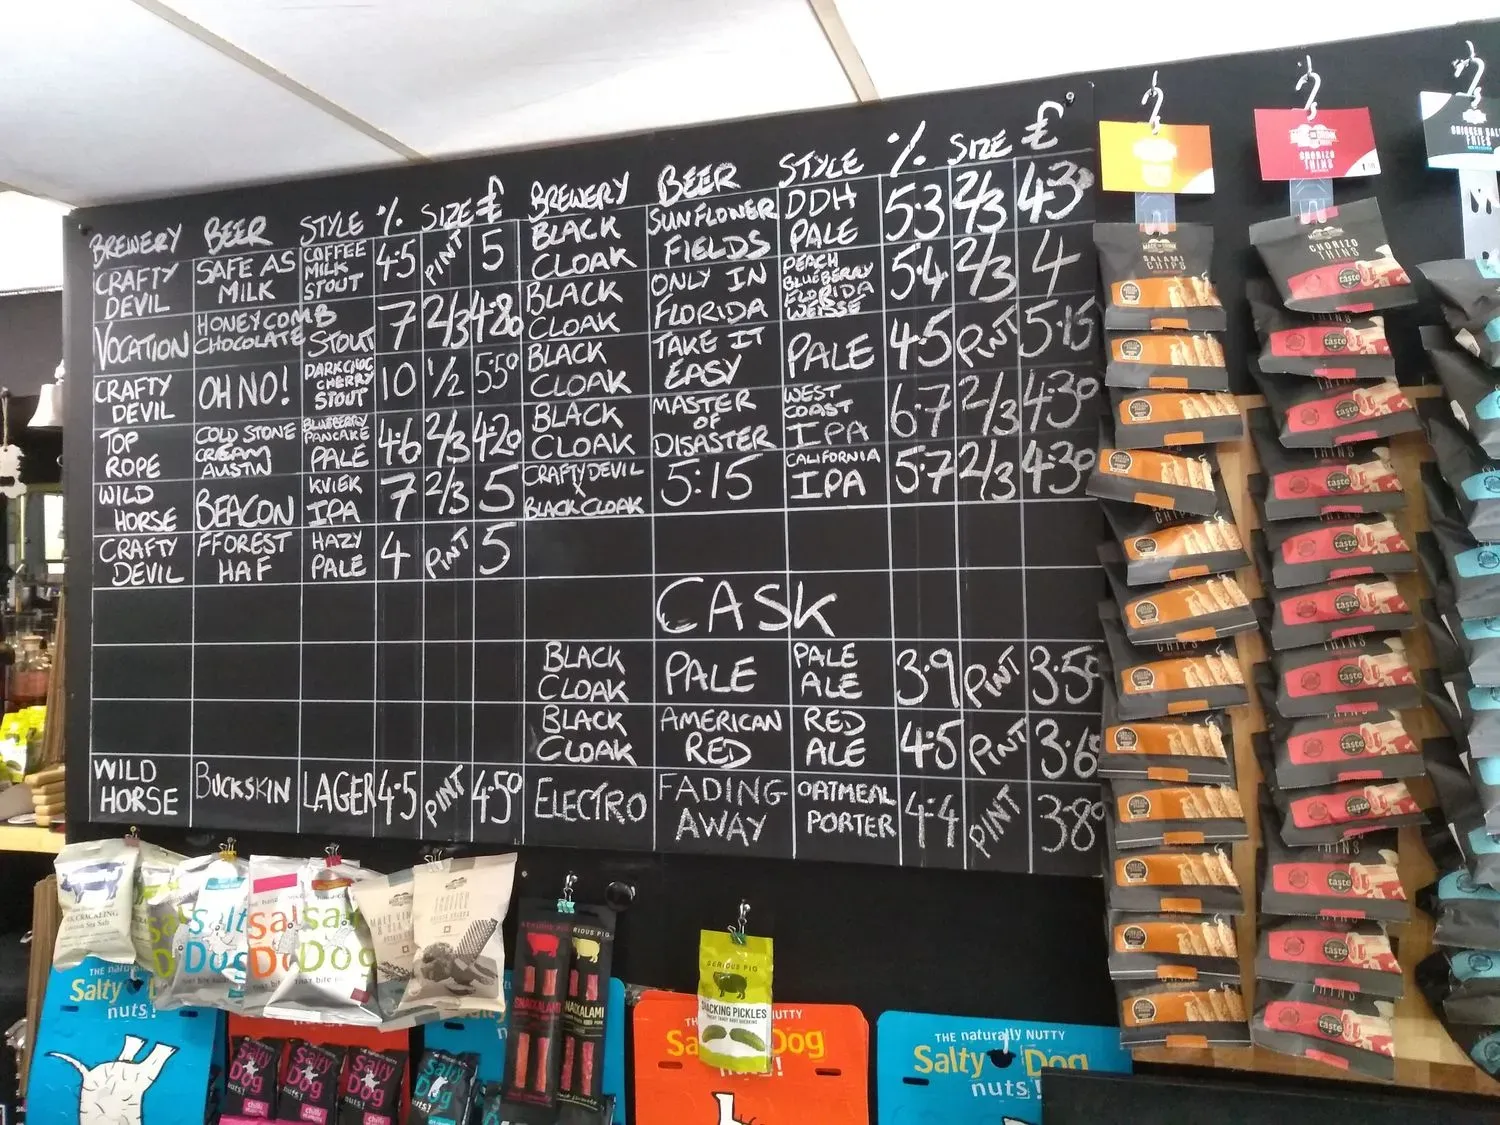 BREWERY BEER STYLE % SIZE £
CRAFTY DEVIL SAFE AS MILK COFFEE MILK STOUT 4.5 PINT 5
VOCATION HONEYCOMB CHOCOLATE STOUT 7 2/3 4.80
CRAFTY DEVIL OH NO! DARK CHOC CHERRY STOUT 10 1/2 5.50
TOP ROPE COLD STONE CREAM AUSTIN BLUEBERRY PANCAKE PALE 4.6 2/3 4.20
WILD HORSE BEACON KVIEK IPA 7 2/3 5
CRAFTY DEVIL FFOREST HAF HAZY PALE 4 PINT 5
WILD HORSE BUCKSKIN LAGER 4.5 PINT 4.50
BREWERY BEER STYLE % SIZE £
BLACK CLOAK SUNFLOWER FIELDS DDH PALE 5.3 2/3 4.30
BLACK CLOAK ONLY IN FLORIDA PEACH BLUEBERRY FLORIDA WEISSE 5.4 2/3 4
BLACK CLOAK TAKE IT EASY PALE 4.5 PINT 5.15
BLACK CLOAK MASTER OF DISASTER WEST COAST IPA 6.7 2/3 4.30
CRAFTY DEVIL X BLACK CLOAK 5:15 CALIFORNIA IPA 5.7 2/3 4.30
CASK
BLACK CLOAK PALE PALE ALE 3.9 PINT 3.50
BLACK CLOAK AMERICAN RED RED ALE 4.5 PINT 3.60
ELECTRO FADING AWAY OATMEAL PORTER 4.4 PINT 3.80
CHORIZO
THINS
SALAMI
CHIPS
CHORIZO
THINS
taste
Salty
Dog
THE naturally NUTTY
Salty Dog
nuts!
SERIOUS PIG
SNACKING PICKLES
SNACKALAMI